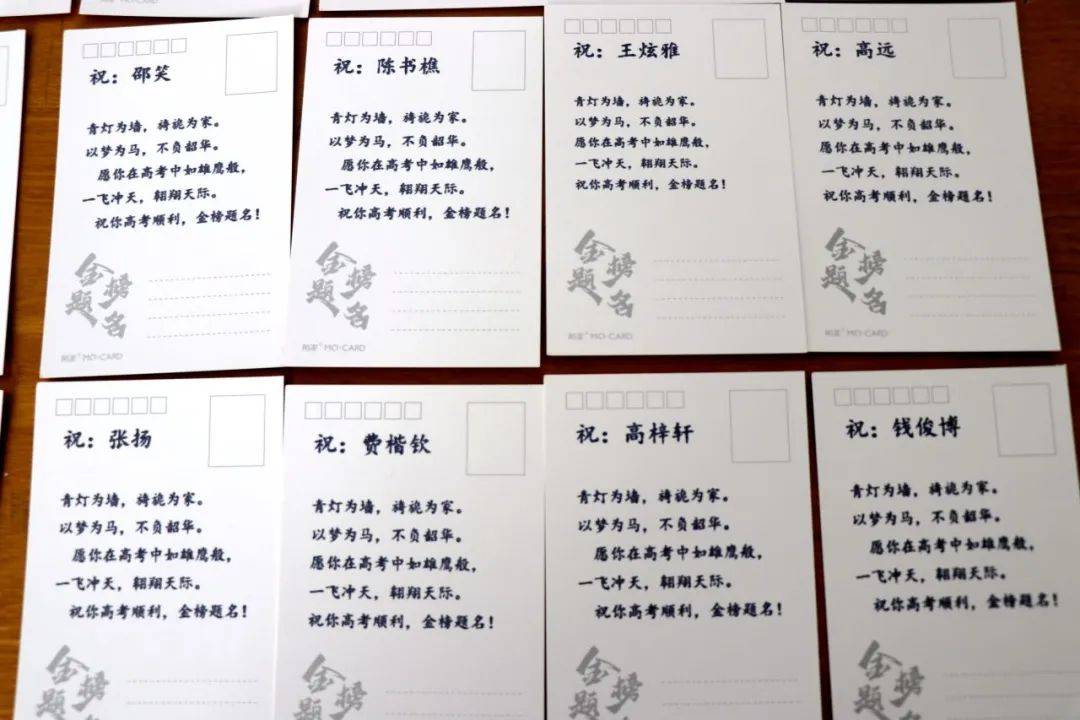 祝：邵笑
青灯为墙，祷诡为家。
以梦为马，不负韶华。
愿你在高考中如雄鹰般，
一飞冲天，翱翔天际。
祝你高考顺利，金榜题名！
金榜题名
MO·CARD
祝：陈书樵
青灯为墙，祷诡为家。
以梦为马，不负韶华。
愿你在高考中如雄鹰般，
一飞冲天，翱翔天际。
祝你高考顺利，金榜题名！
金榜题名
MO·CARD
祝：王炫雅
青灯为墙，祷诡为家。
以梦为马，不负韶华。
愿你在高考中如雄鹰般，
一飞冲天，翱翔天际。
祝你高考顺利，金榜题名！
金榜题名
MO·CARD
祝：高远
青灯为墙，祷诡为家。
以梦为马，不负韶华。
愿你在高考中如雄鹰般，
一飞冲天，翱翔天际。
祝你高考顺利，金榜题名！
金榜题名
MO·CARD
祝：张扬
青灯为墙，祷诡为家。
以梦为马，不负韶华。
愿你在高考中如雄鹰般，
一飞冲天，翱翔天际。
祝你高考顺利，金榜题名！
金榜题
祝：费楷钦
青灯为墙，祷诡为家。
以梦为马，不负韶华。
愿你在高考中如雄鹰般，
一飞冲天，翱翔天际。
祝你高考顺利，金榜题名！
金榜题
祝：高梓轩
青灯为墙，祷诡为家。
以梦为马，不负韶华。
愿你在高考中如雄鹰般，
一飞冲天，翱翔天际。
祝你高考顺利，金榜题名！
金榜题
祝：钱俊博
青灯为墙，祷诡为家。
以梦为马，不负韶华。
愿你在高考中如雄鹰般，
一飞冲天，翱翔天际。
祝你高考顺利，金榜题名！
金榜题